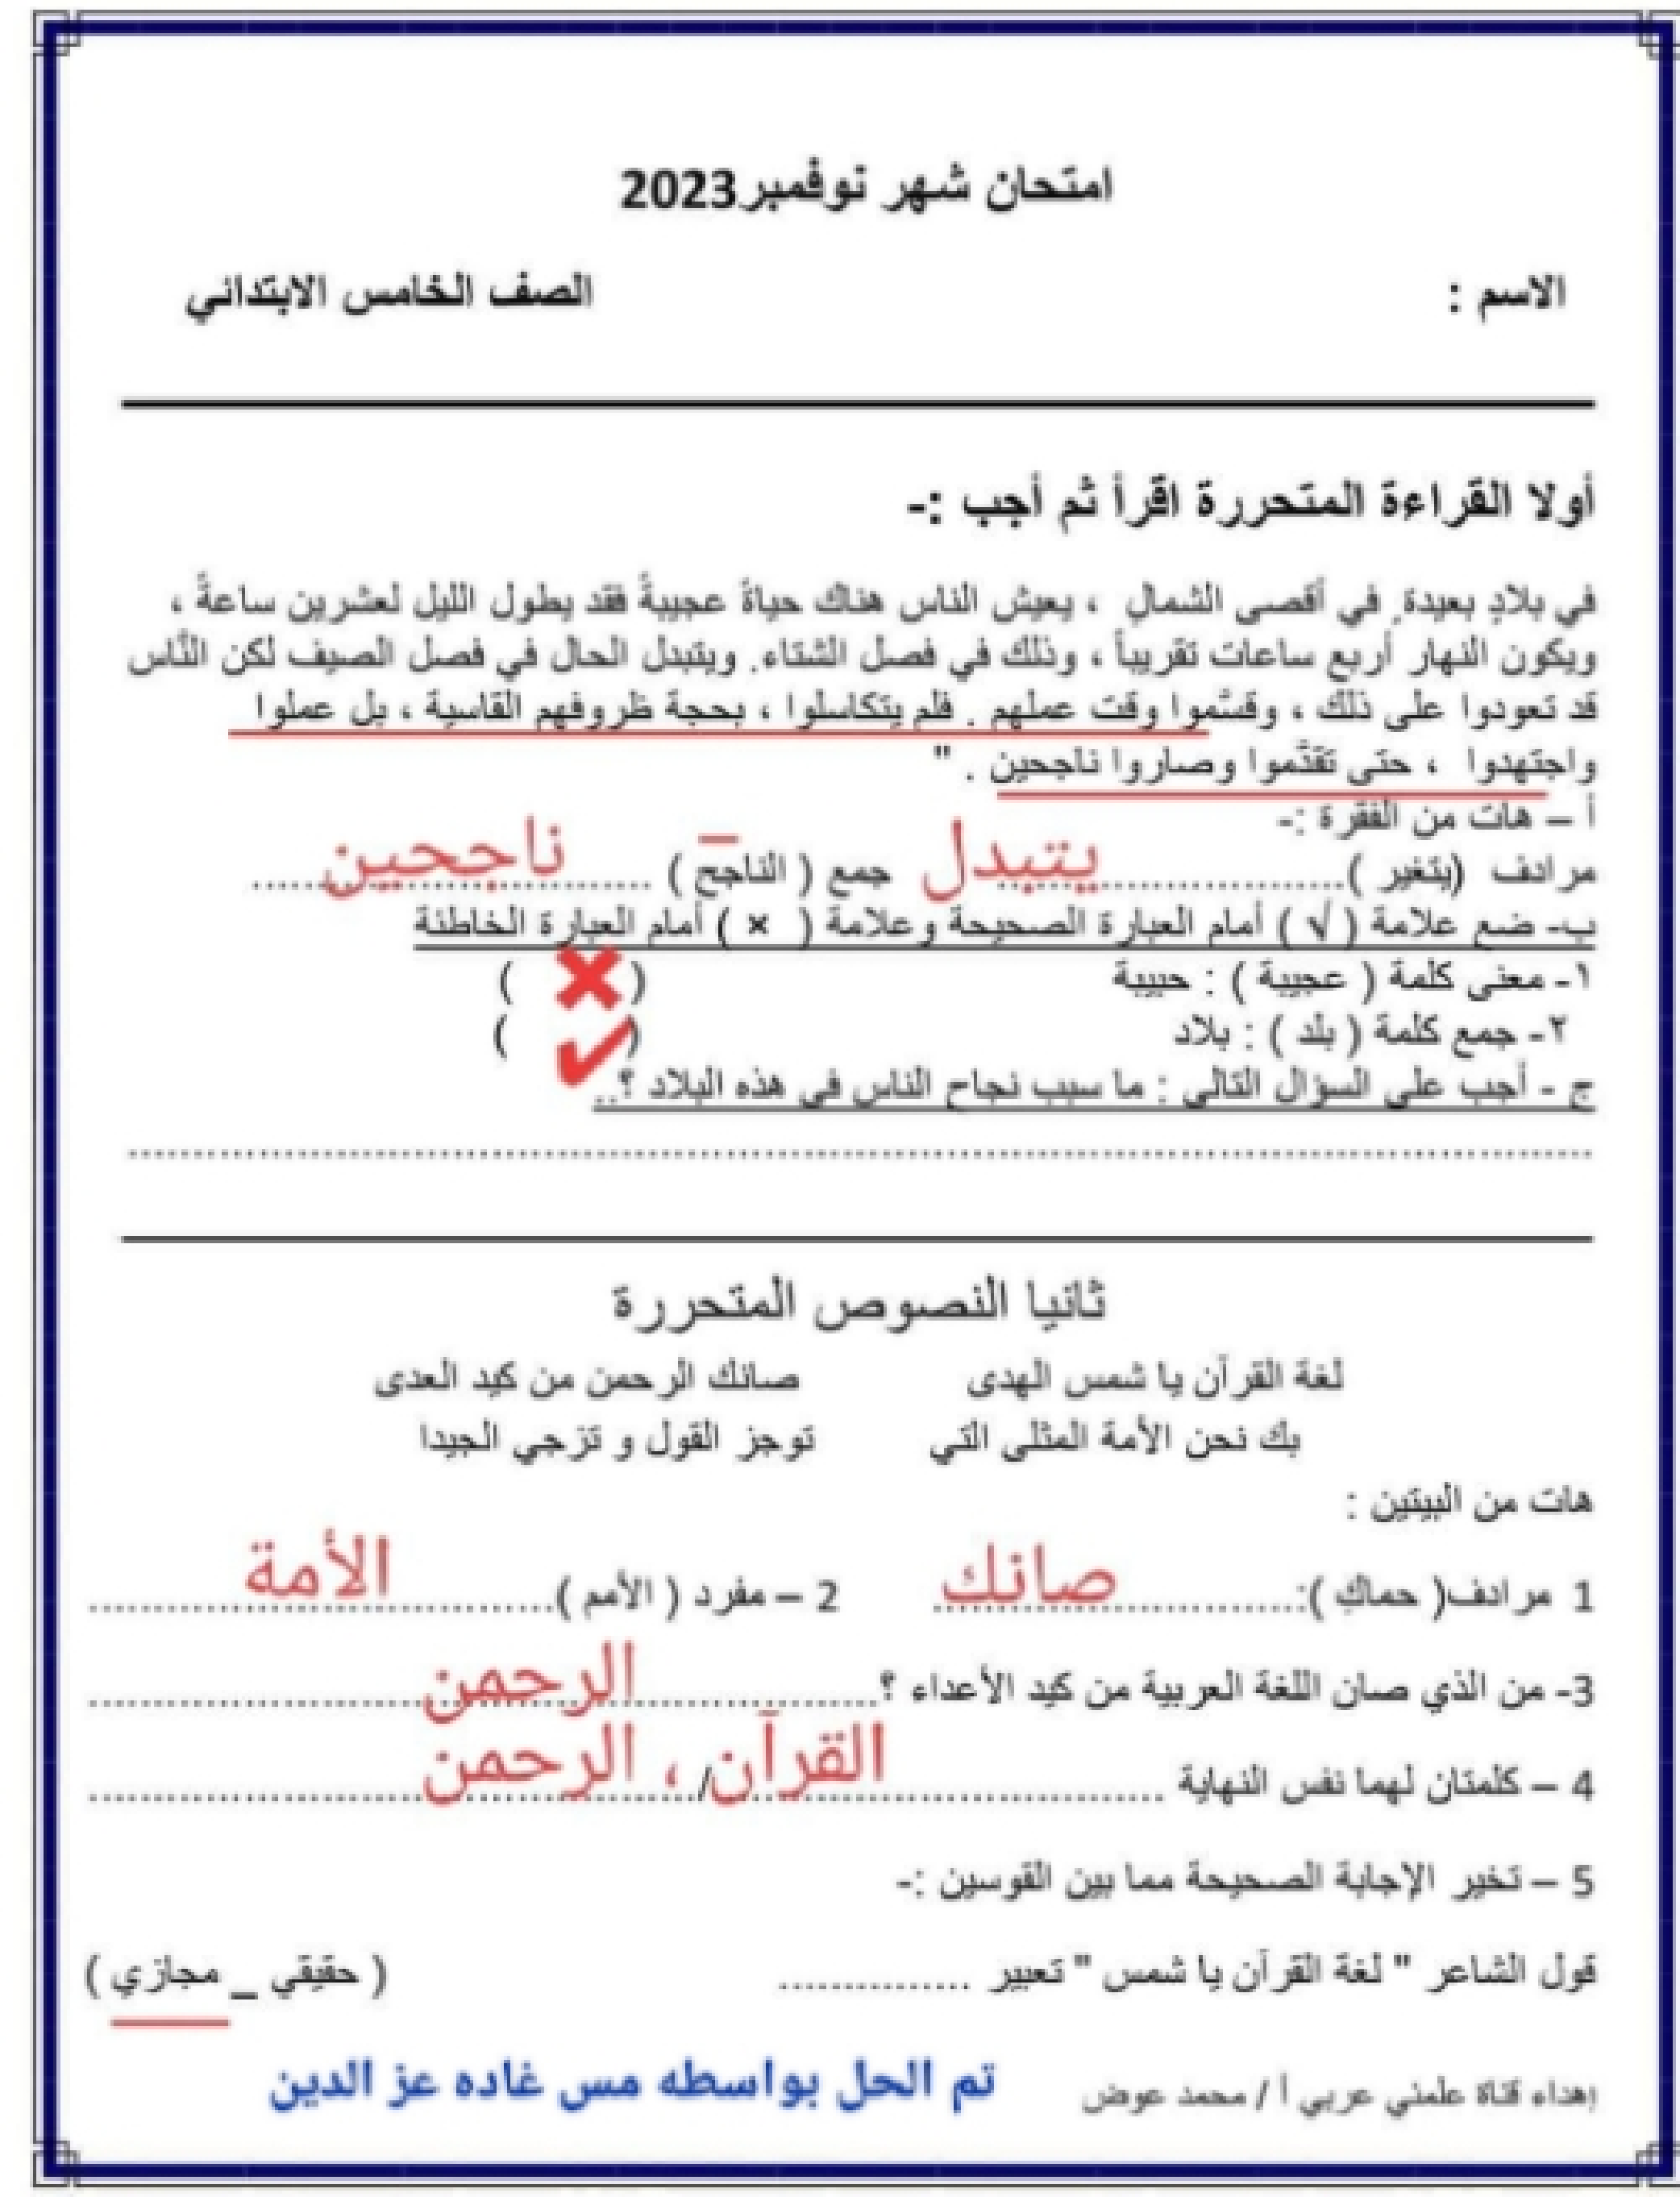 امتحان شهر نوفمبر2023
الاسم : الصف الخامس الابتدائي
أولا القراءة المتحررة اقرأ ثم أجب :-
في بلادٍ بعيدة ٍ في أقصى الشمالِ ، يعيش الناس هناك حياةً عجيبةً فقد يطول الليل لعشرين ساعةً ،
ويكون النهار أربع ساعات تقريباً ، وذلك في فصل الشتاء. ويتبدل الحال في فصل الصيف لكن النَّاس
قد تعودوا على ذلك ، وقسَّموا وقت عملهم . فلم يتكاسلوا ، بحجة ظروفهم القاسية ، بل عملوا
واجتهدوا ، حتى تقدَّموا وصاروا ناجحين . "
أ – هات من الفقرة :-
مرادف (يتغير )............ يتبدل جمع ( الناجح ) ............ ناجحين
ب- ضع علامة ( √ ) أمام العبارة الصحيحة وعلامة ( × ) أمام العبارة الخاطئة
١- معنى كلمة ( عجيبة ) : حبيبة ( ✖ )
٢- جمع كلمة ( بلد ) : بلاد ( ✔ )
ج - أجب على السؤال التالى : ما سبب نجاح الناس فى هذه البلاد ؟..
ثانيا النصوص المتحررة
لغة القرآن يا شمس الهدى صانك الرحمن من كيد العدى
بك نحن الأمة المثلى التي توجز القول و تزجي الجيدا
هات من البيتين :
1 مرادف( حماكِ ):............ صانك 2 – مفرد ( الأمم )............ الأمة
3- من الذي صان اللغة العربية من كيد الأعداء ؟............ الرحمن
4 – كلمتان لهما نفس النهاية ............ القرآن/ ، الرحمن
5 – تخير الإجابة الصحيحة مما بين القوسين :-
قول الشاعر " لغة القرآن يا شمس " تعبير ............... ( حقيقي _ مجازي )
إهداء قناة علمني عربي أ / محمد عوض تم الحل بواسطه مس غاده عز الدين